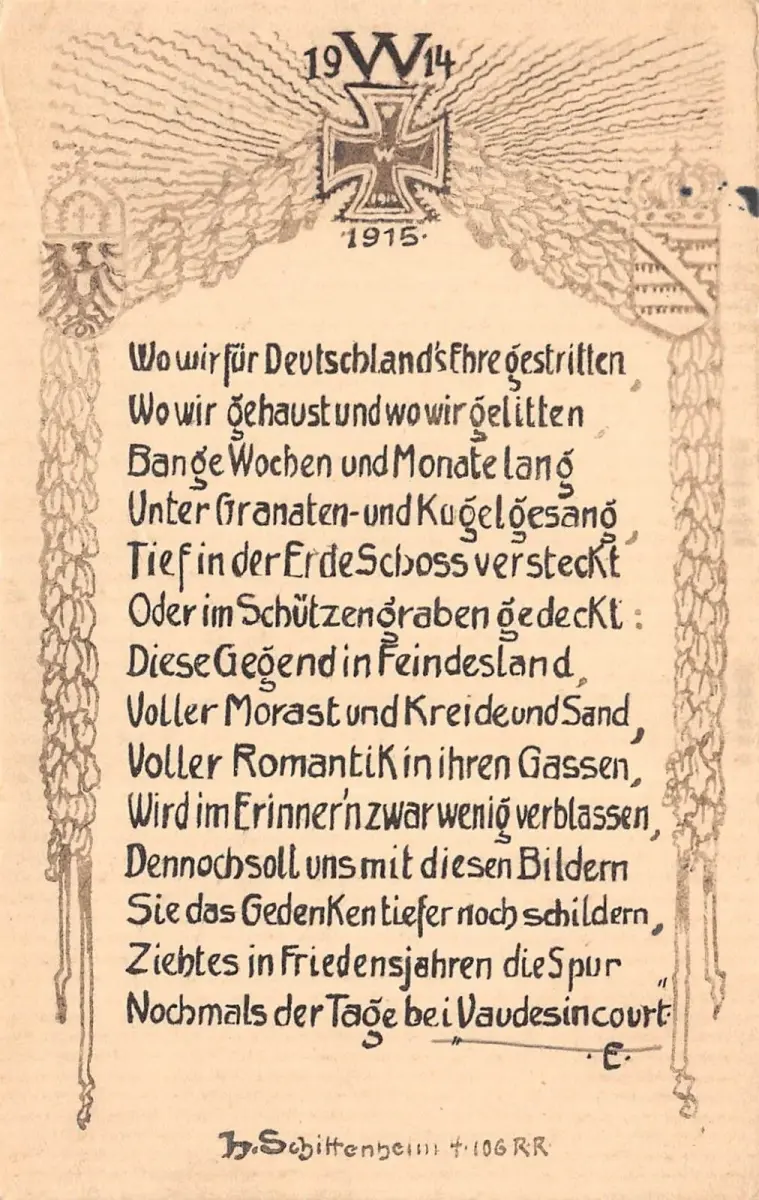 19 W 14
W
1915.
Wo wir für Deutschland's Ehre gestritten,
Wo wir gehaust und wo wir gelitten
Bange Wochen und Monate lang
Unter Granaten- und Kugelgesang,
Tief in der Erde Schoss versteckt
Oder im Schützengraben gedeckt:
Diese Gegend in Feindesland,
Voller Morast und Kreide und Sand,
Voller Romantik in ihren Gassen,
Wird im Erinner'n zwar wenig verblassen,
Dennoch soll uns mit diesen Bildern
Sie das Gedenken tiefer noch schildern,
Zieht es in Friedensjahren die Spur
Nochmals der Tage bei „Vaudesincourt“
.E.
Schittenhelm † 106 R.R.